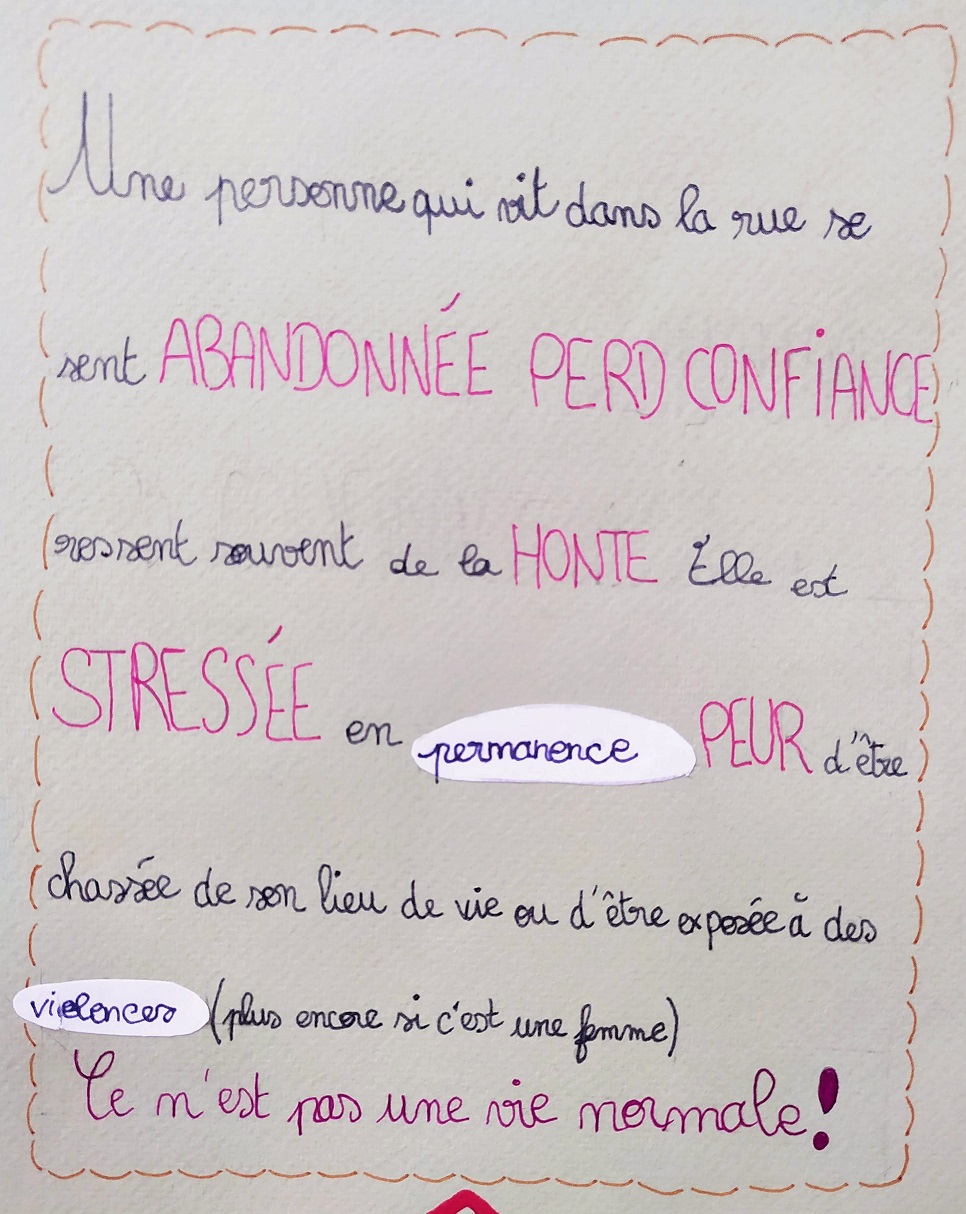 Une personne qui vit dans la rue se
sent ABANDONNÉE PERD CONFiANCE
ressent souvent de la HONTE Elle est
STRESSÉE en permanence PEUR d'être
chassée de son lieu de vie ou d'être exposée à des
violences (plus encore si c'est une femme)
Ce n'est pas une vie normale!